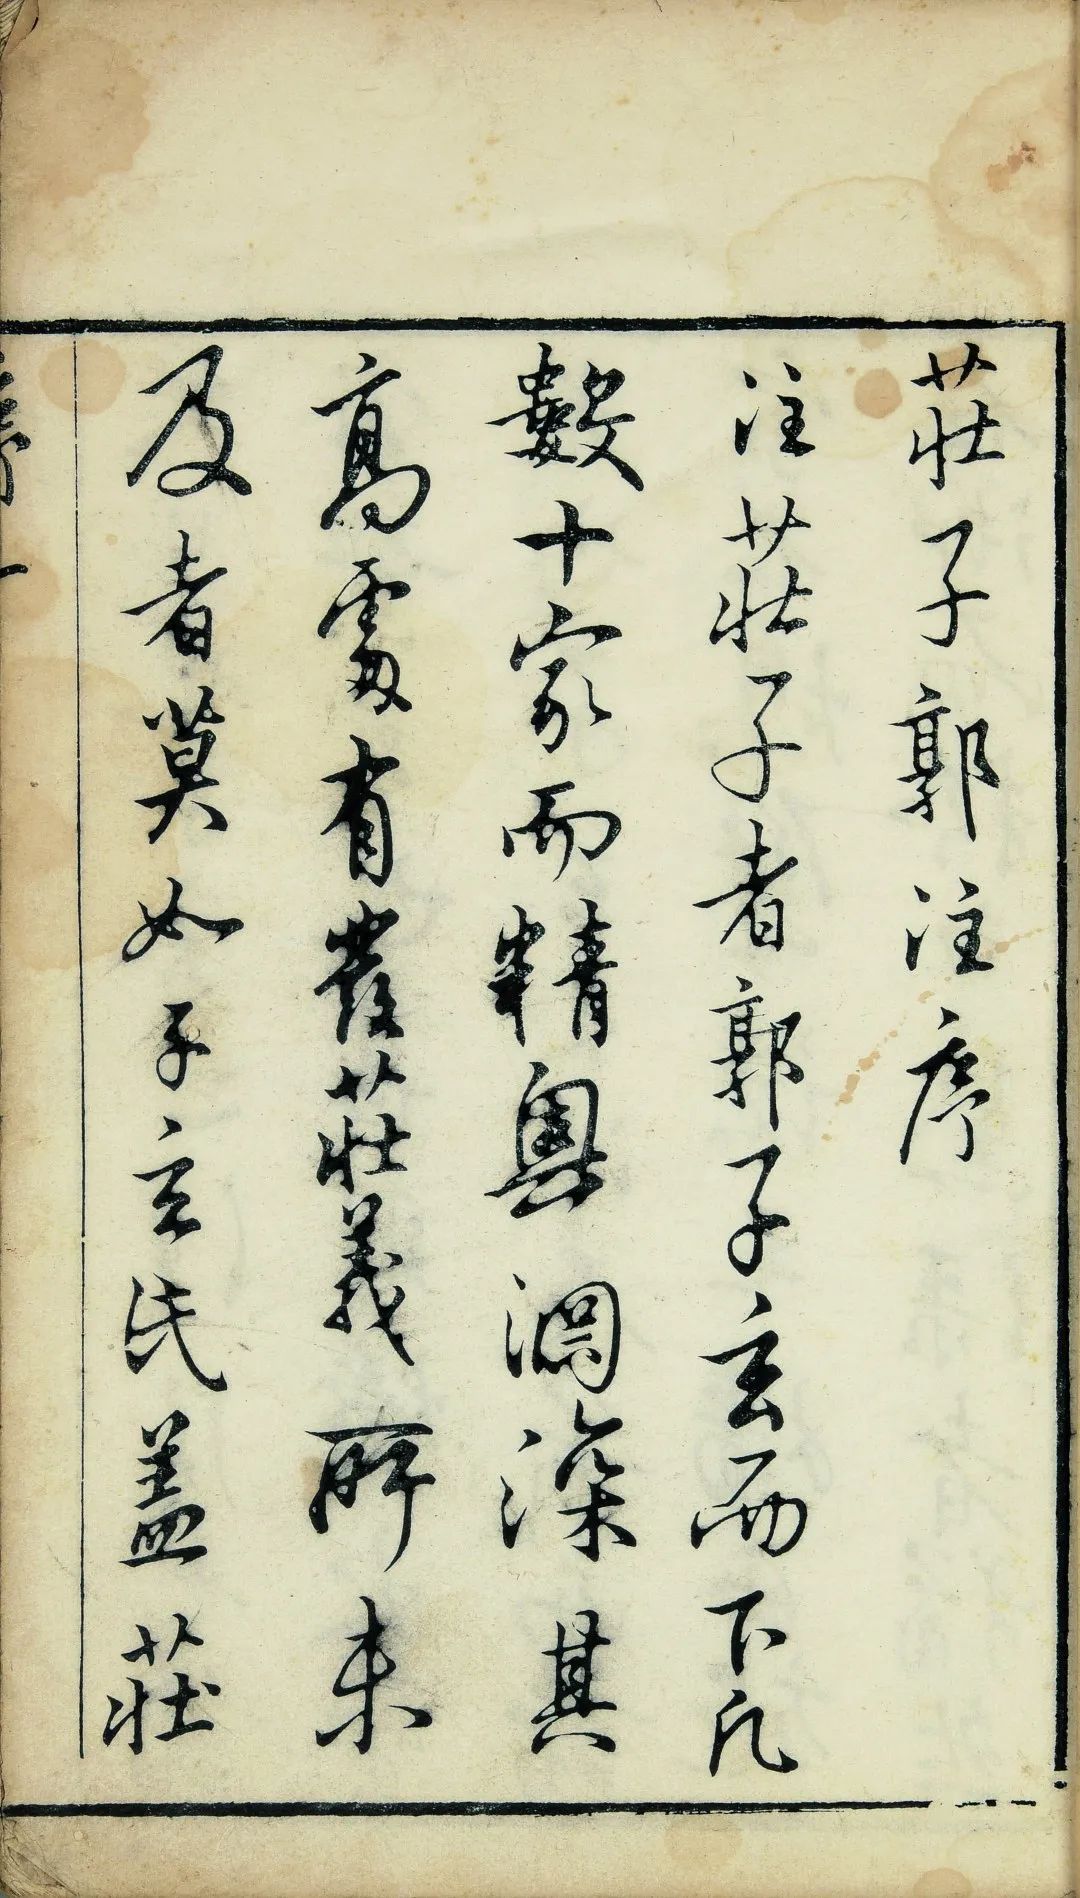 莊子郭注序
注莊子者郭子玄而下凡
數十家而精奧淵深其
高處有發莊義所未
及者莫如子玄氏蓋莊